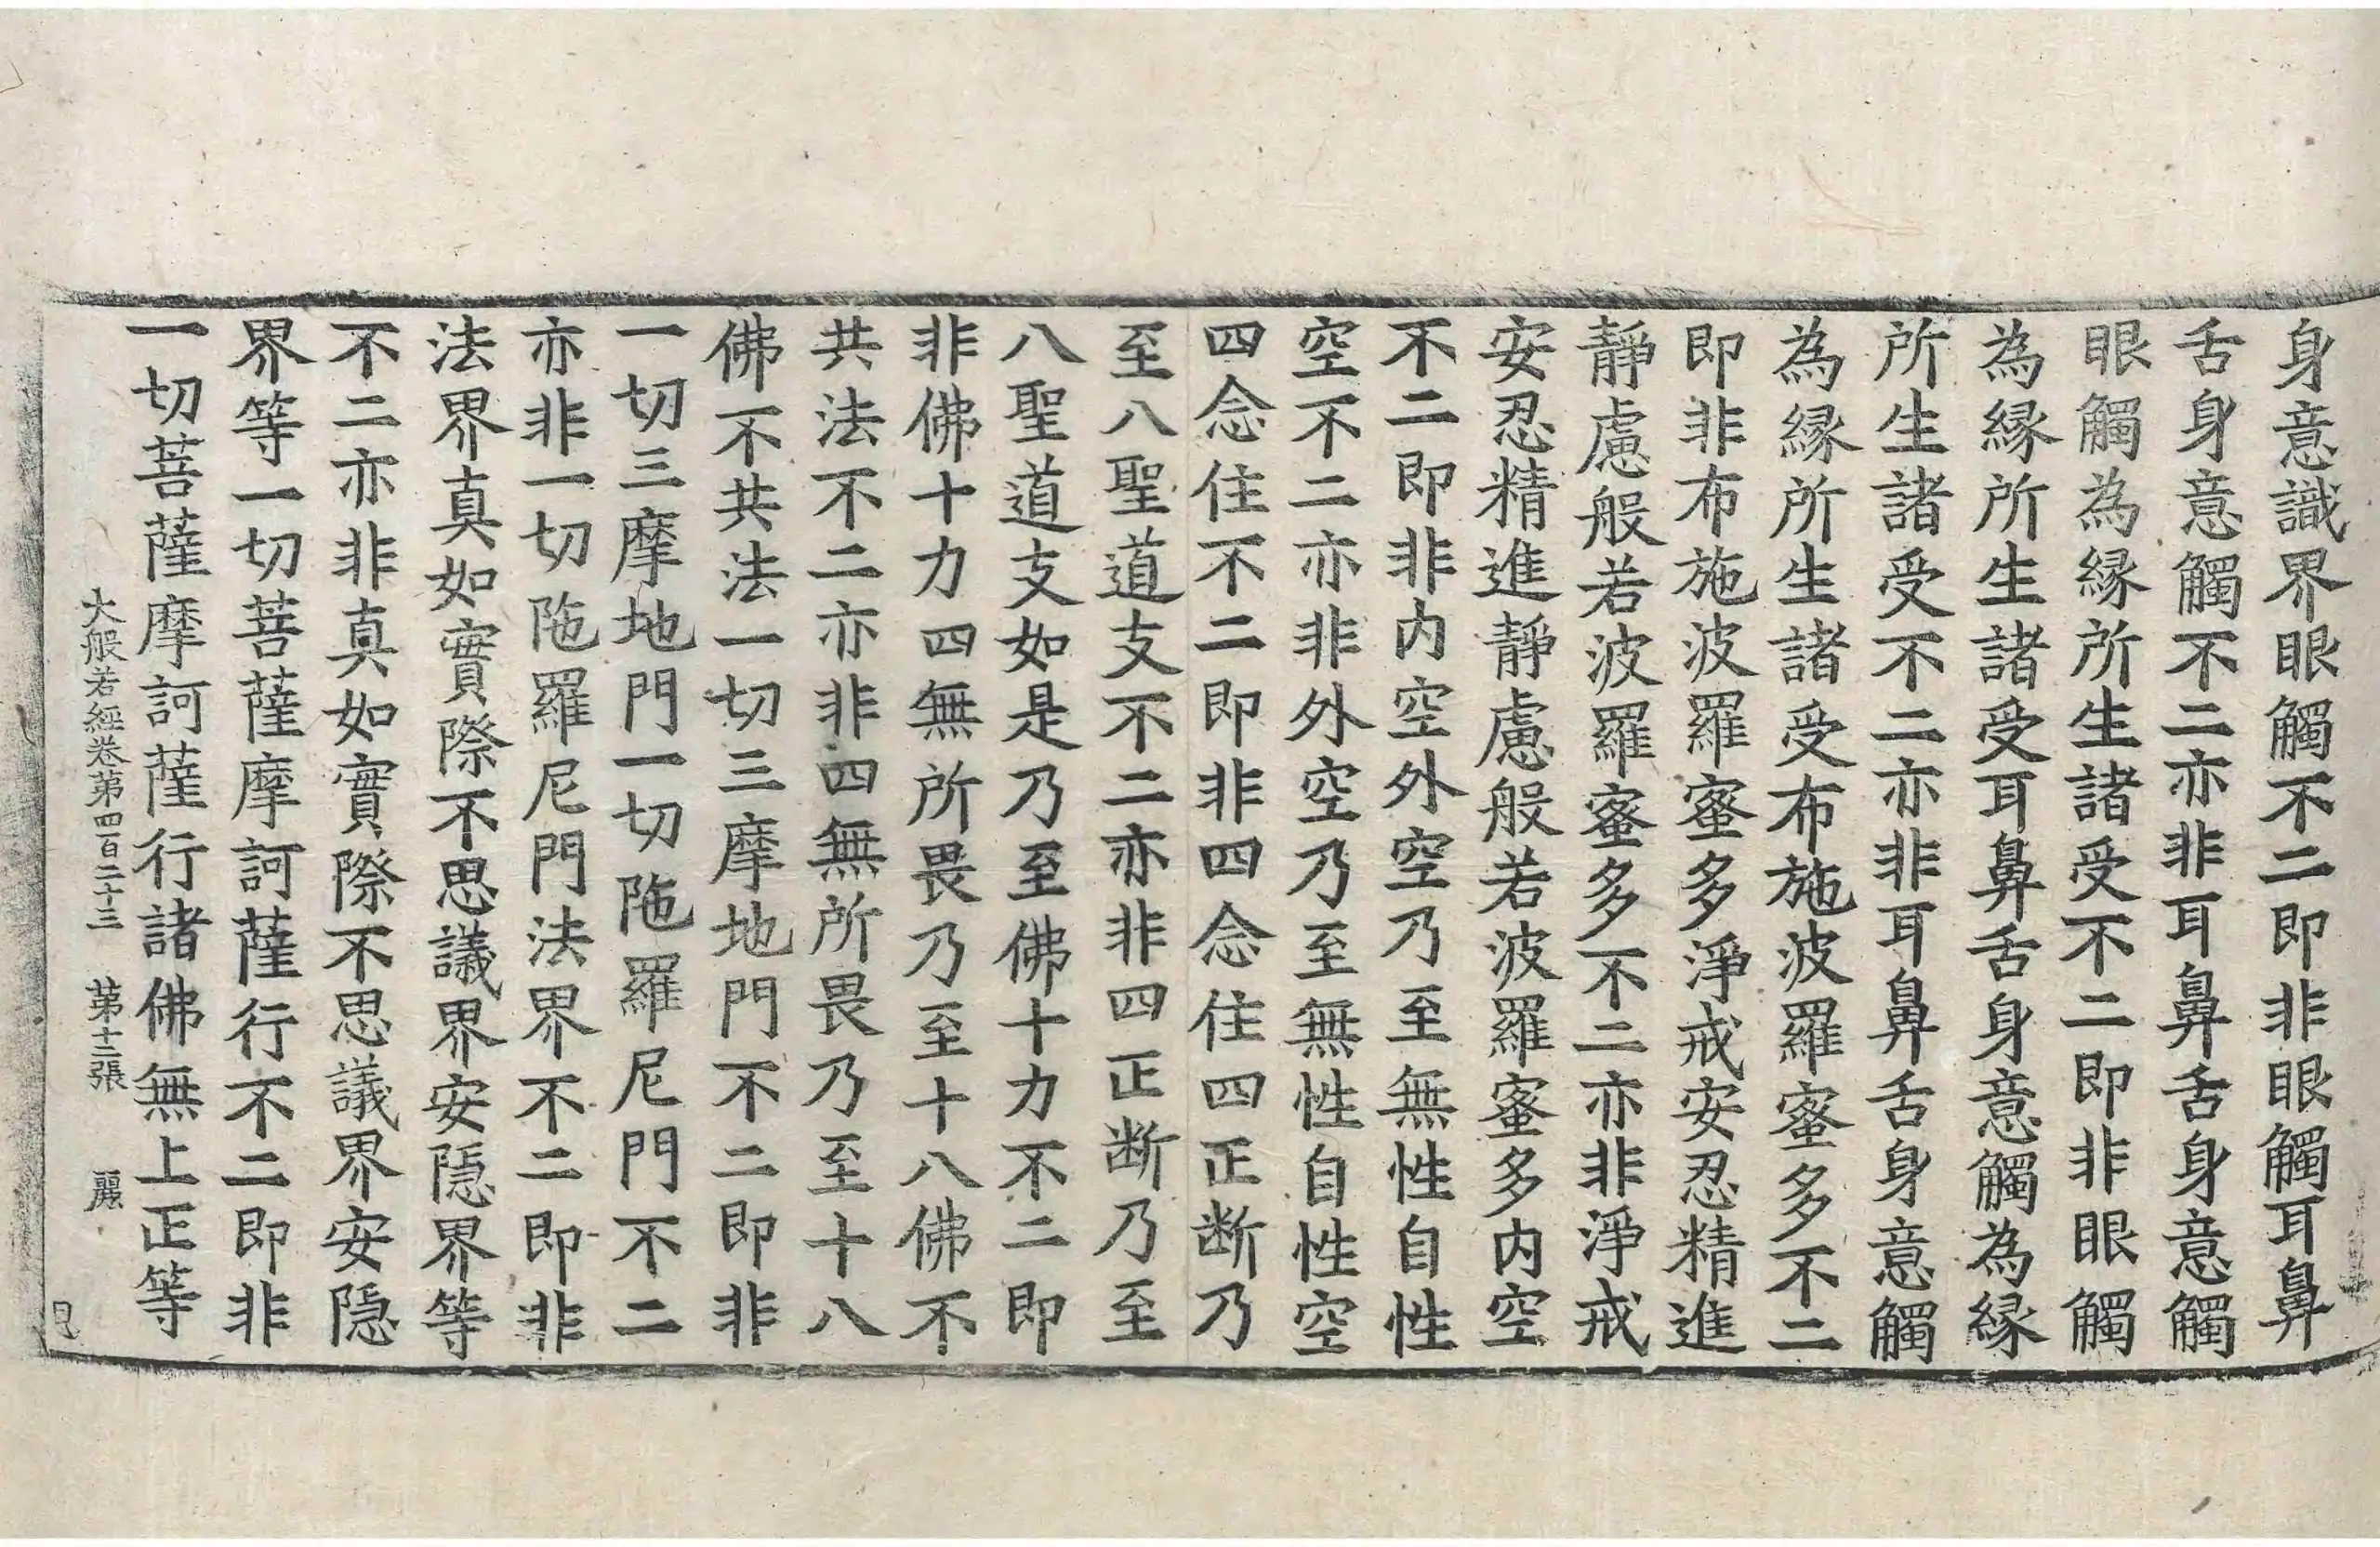 身意識界眼觸不二即非眼觸耳鼻
舌身意觸不二亦非耳鼻舌身意觸
眼觸為縁所生諸受不二即非眼觸
為縁所生諸受耳鼻舌身意觸為縁
所生諸受不二亦非耳鼻舌身意觸
為縁所生諸受布施波羅蜜多不二
即非布施波羅蜜多淨戒安忍精進
靜慮般若波羅蜜多不二亦非淨戒
安忍精進靜慮般若波羅蜜多内空
不二即非内空外空乃至無性自性
空不二亦非外空乃至無性自性空
四念住不二即非四念住四正断乃
至八聖道支不二亦非四正断乃至
八聖道支如是乃至佛十力不二即
非佛十力四無所畏乃至十八佛不
共法不二亦非四無所畏乃至十八
佛不共法一切三摩地門不二即非
一切三摩地門一切陁羅尼門不二
亦非一切陁羅尼門法界不二即非
法界真如實際不思議界安隱界等
不二亦非真如實際不思議界安隱
界等一切菩薩摩訶薩行不二即非
一切菩薩摩訶薩行諸佛無上正等
大般若經卷第四百二十三 第十二張 麗